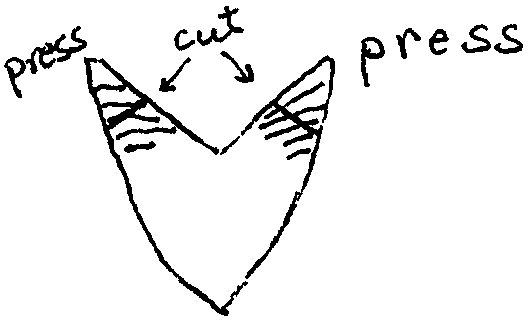 press
cut
press